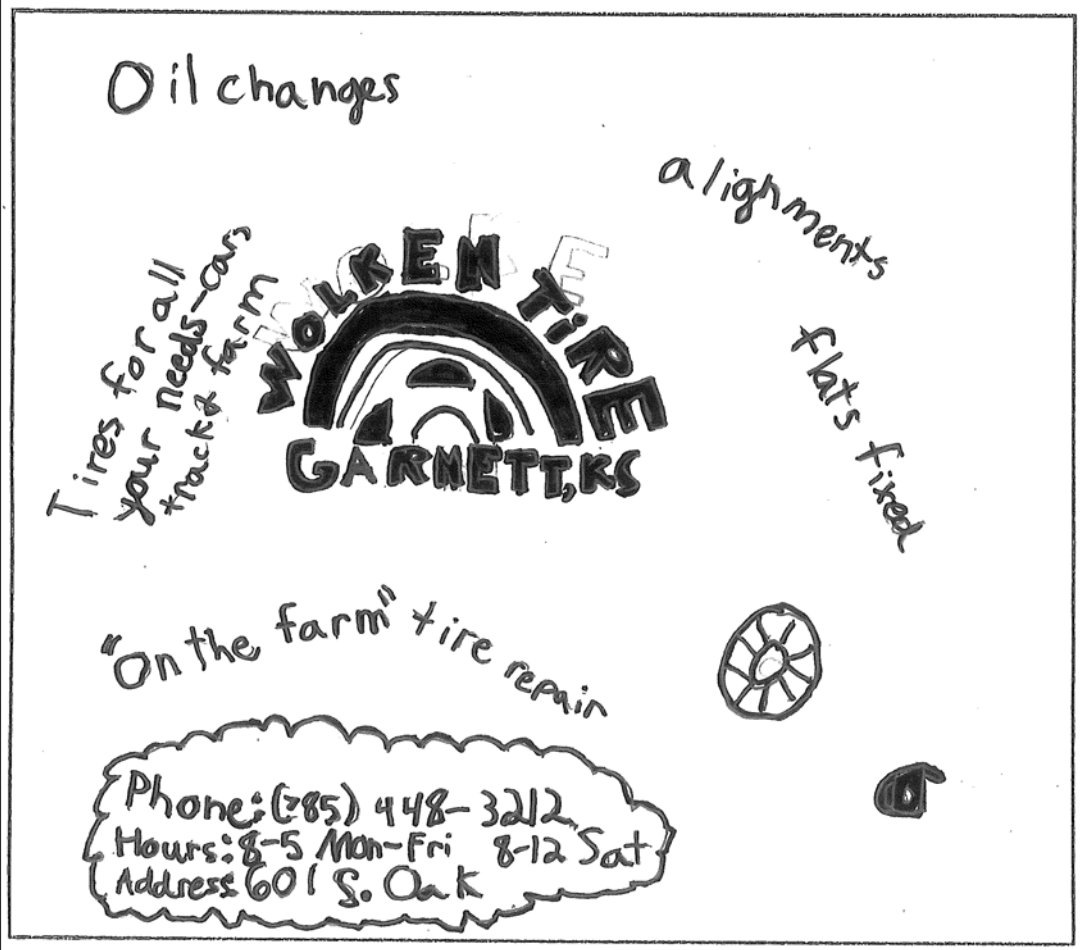 Oil changes
alignments
Tires for all
your needs-cars
track & farm
WOLKEN TIRE
GARNETT, KS
flats fixed
"On the farm" tire repair
Phone: (785) 448-3212
Hours: 8-5 Mon-Fri 8-12 Sat
Address 601 S. Oak